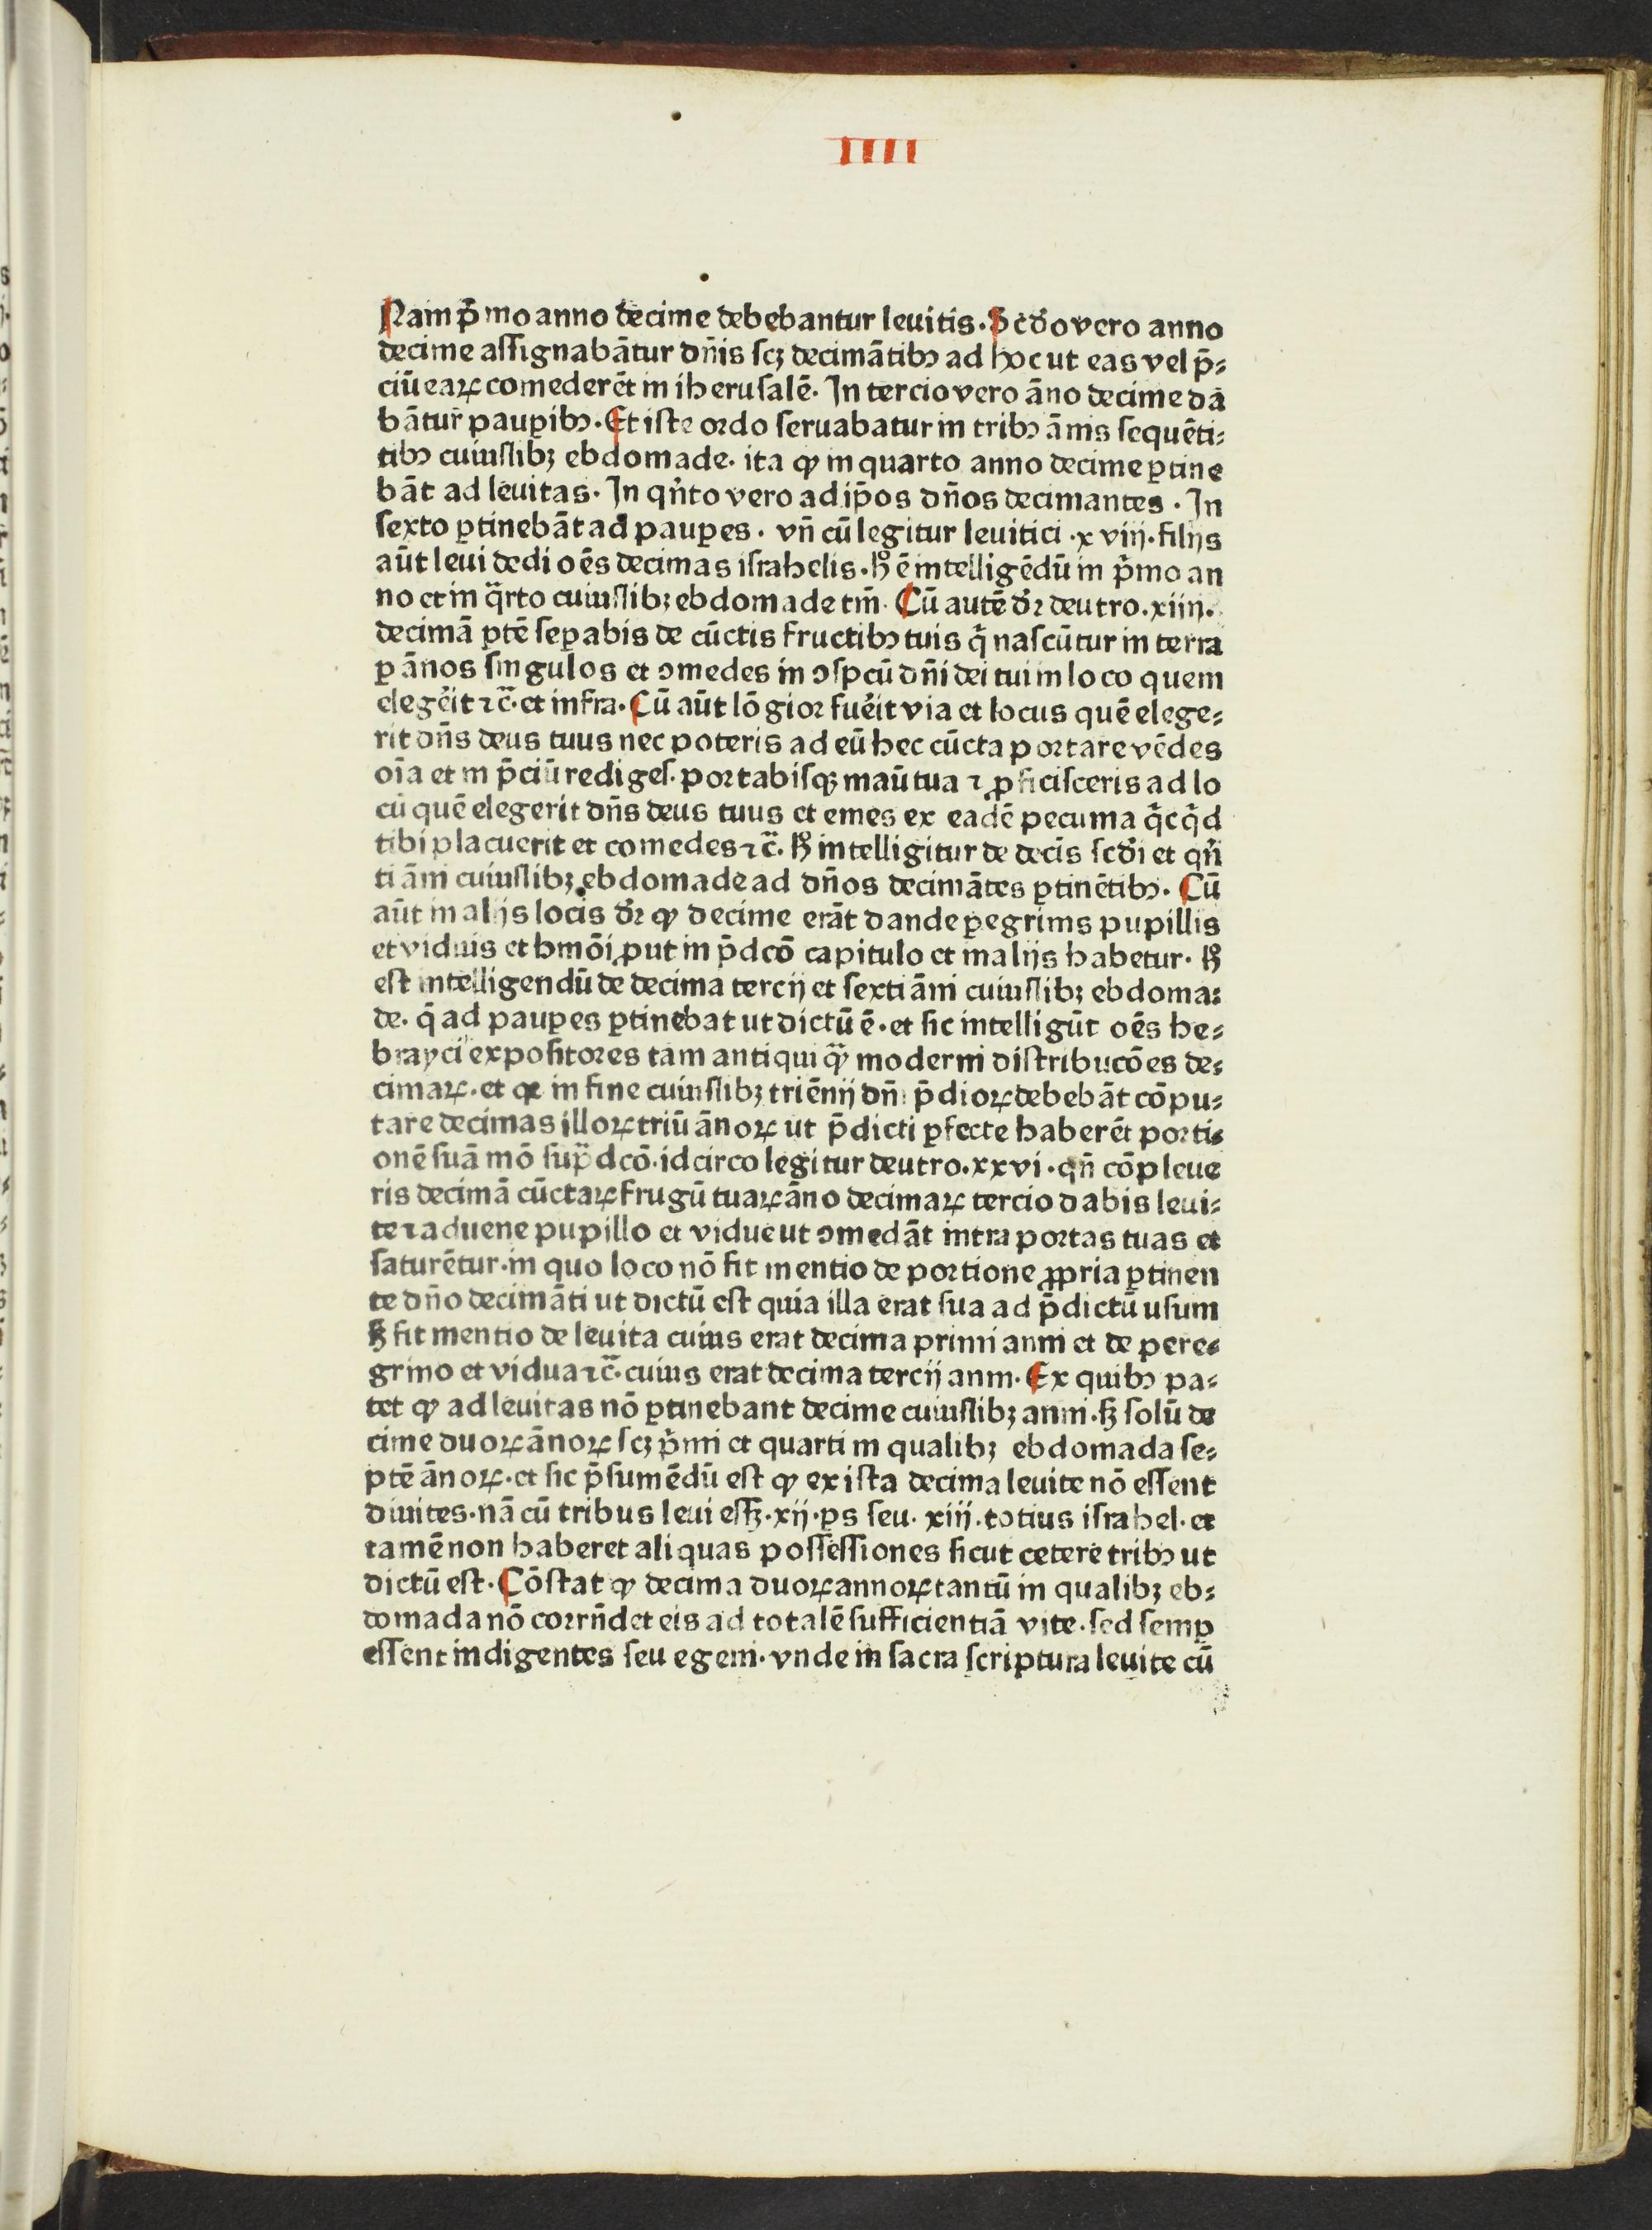 IIII
Nam p̄mo anno decime debebantur leuitis. Scd̄o vero anno
decime aſſignabātur dn̄is ſcꝫ decimātibꝰ ad hoc ut eas vel p̄⸗
ciū eaꝝ comederēt in iheruſalē. In tercio vero āno decime dā
bātur paupibꝰ. Et iſte ordo ſeruabatur in tribꝰ ānis ſequēti⸗
tibꝰ cuiuſlibꝫ ebdomade. ita ꝙ in quarto anno decime ꝑtine
bāt ad leuitas. In qn̄to vero ad ip̄os dn̄os decimantes. In
ſexto ꝑtinebāt ad pauꝑes. vn̄ cū legitur leuitici .xviij. filijs
aūt leui dedi oēs decimas iſrahelis. hͦ ē intelligēdū in p̄mo an
no et in qͣrto cuiuſlibꝫ ebdomade tm̄. Cū autē dr̄ deutro. xiiij.
decimā ꝑtē ſeꝑabis de cūctis fructibꝰ tuis q̄ naſcūtur in terra
ꝑ ānos ſingulos et ꝯmedes in ꝯſpcū dn̄i dei tui in loco quem
elegēit ⁊c̄. et infra. Cū aūt lōgior fuēit via et locus quē elege⸗
rit dn̄s deus tuus nec poteris ad eū hec cūcta portare vēdes
oīa et in p̄ciū rediges. portabiſqꝫ maū tua ⁊ ꝓficiſceris ad lo
cū quē elegerit dn̄s deus tuus et emes ex eadē pecunia q̄cq̄d
tibi placuerit et comedes ⁊c̄. hͦ intelligitur de decīs ſcd̄i et qn̄
ti āni cuiuſlibꝫ ebdomade ad dn̄os decimātes ꝑtinētibꝰ. Cū
aūt in alijs locis dr̄ ꝙ decime erāt dande ꝑegrinis pupillis
et viduis et hmōi ꝓut in p̄dcō capitulo et in alijs habetur. hͦ
eſt intelligendū de decima tercij et ſexti āni cuiuſlibꝫ ebdoma⸗
de. q̄ ad pauꝑes ꝑtinebat ut dictū ē. et ſic intelligūt oēs he⸗
brayci expoſitores tam antiqui qͣ̄ moderni diſtribucōes de⸗
cimaꝝ. et ꝙ in fine cuiuſlibꝫ triēnij dn̄i p̄dioꝝ debebāt cōpu⸗
tare decimas illoꝝ triū ānoꝝ ut p̄dicti ꝑfecte haberēt porti⸗
onē ſuā mō ſupͣdcō. idcirco legitur deutro. xxvi. qn̄ cōpleue
ris decimā cūctaꝝ frugū tuaꝝ āno decimaꝝ tercio dabis leui⸗
te ⁊ aduene pupillo et vidue ut ꝯmedāt intra portas tuas et
ſaturētur. in quo loco nō fit mentio de portione ꝓpria ꝑtinen
te dn̄o decimāti ut dictū eſt quia illa erat ſua ad p̄dictū uſum
ſꝫ fit mentio de leuita cuius erat decima primi anni et de pere⸗
grino et vidua ⁊c̄. cuius erat decima tercij anni. Ex quibꝰ pa⸗
tet ꝙ ad leuitas nō ꝑtinebant decime cuiuſlibꝫ anni. ſꝫ ſolū de
cime duoꝝ ānoꝝ ſcꝫ p̄mi et quarti in qualibꝫ ebdomada ſe⸗
ptē ānoꝝ. et ſic p̄ſumēdū eſt ꝙ ex iſta decima leuite nō eſſent
diuites. nā cū tribus leui eſſꝫ .xij. ꝑs ſeu .xiij. totius iſrahel. et
tamē non haberet aliquas poſſeſſiones ſicut cetere tribꝰ ut
dictū eſt. Cōſtat ꝙ decima duoꝝ annoꝝ tantū in qualibꝫ eb⸗
domada nō corrn̄det eis ad totalē ſufficientiā vite. ſed ſemꝑ
eſſent indigentes ſeu egeni. vnde in ſacra ſcriptura leuite cū